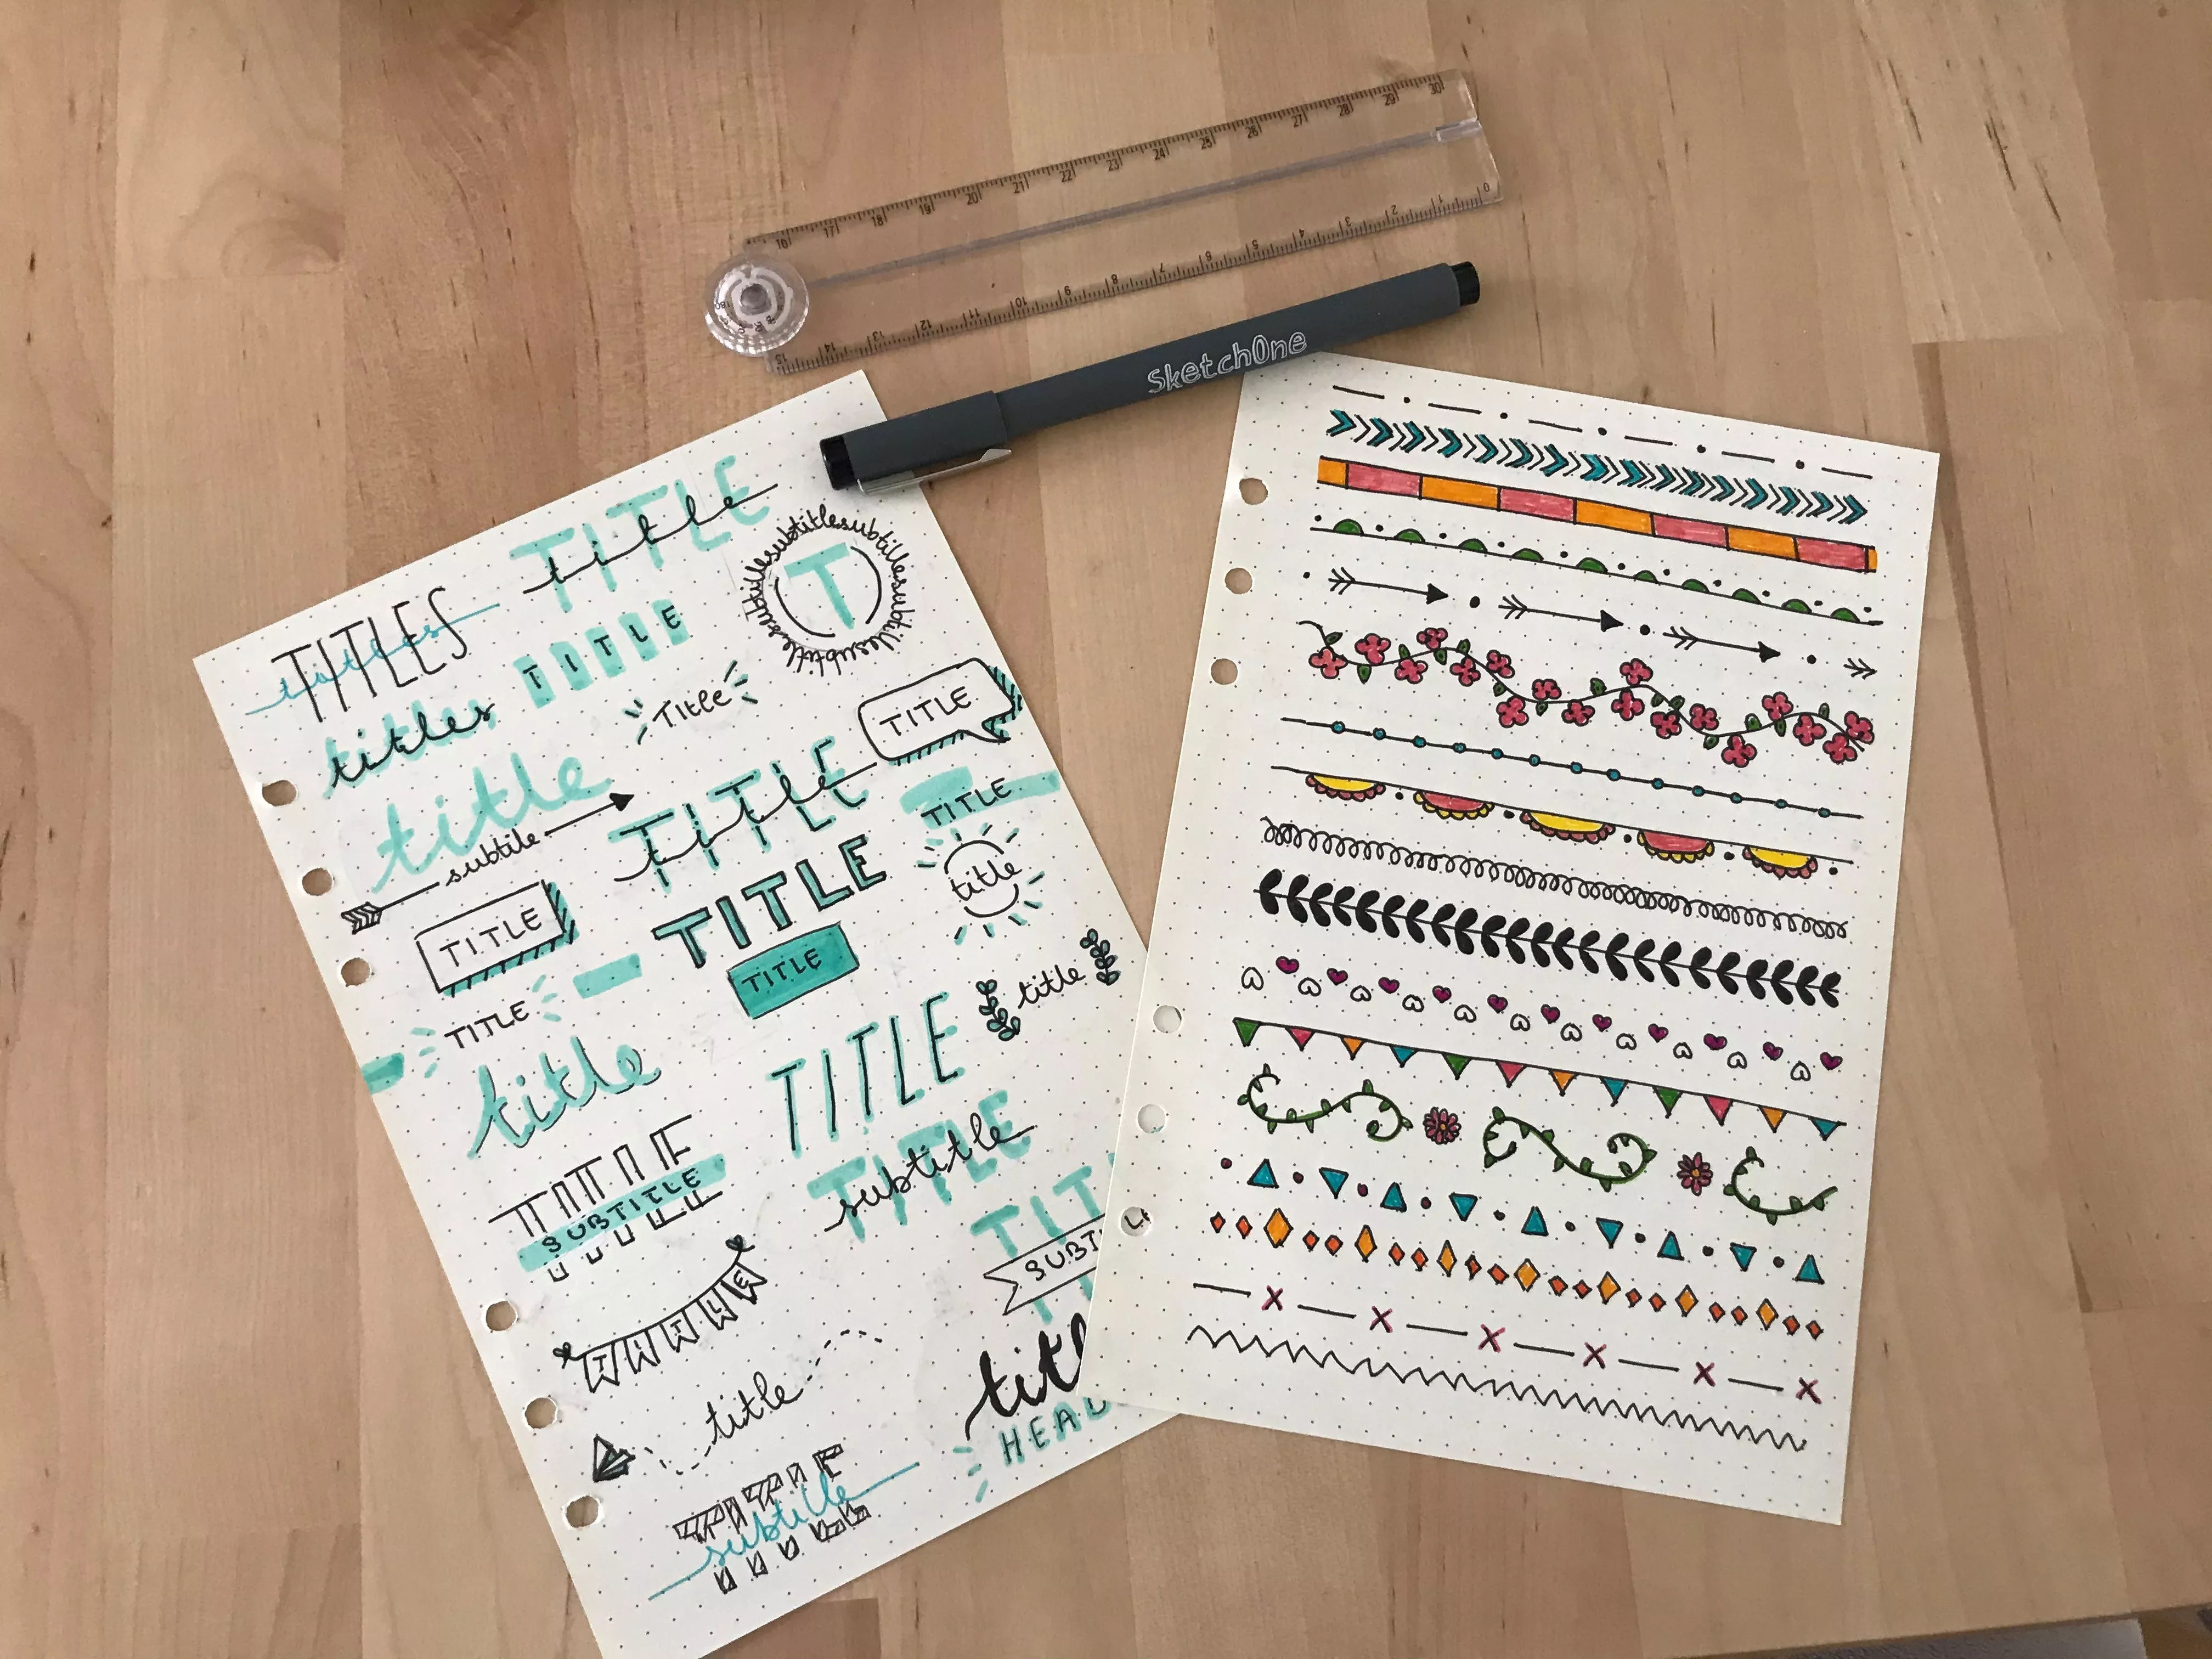 16 17 18 19 20 21 22 23 24 25 26 27 28 29 30
15 14 13 12 11 10 9 8 7 6 5 4 3 2 1 0
SketchOne
TITLE
title
TITLES
titles
subtitlesubtitlesubtitlesubtitlesubtitlesubtitle
T
TITLE
titles
Title
TITLE
title
subtitle
TITLE
title
TITLE
TITLE
title
TITLE
TITLE
TITLE
title
TITLE
title
TITLE
TITLE
SUBTITLE
TITLE
subtitle
TIT
SUBT
TITLE
title
titl
HEAD
TITLE
subtitle